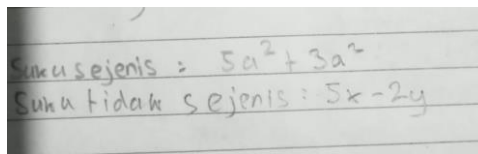 Suku sejenis : 5a² + 3a²
Suku tidak sejenis : 5x - 2y